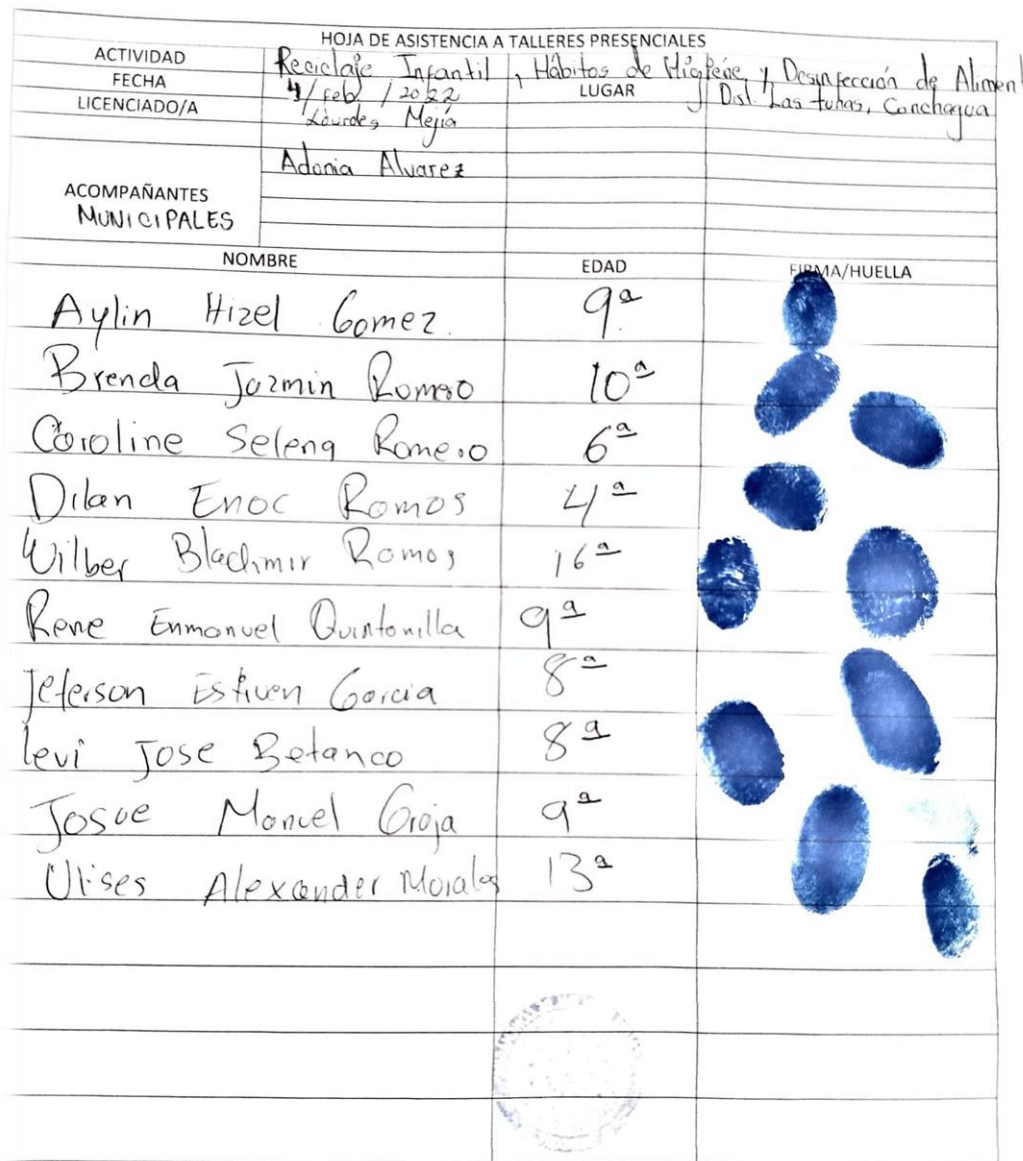 HOJA DE ASISTENCIA A TALLERES PRESENCIALES
ACTIVIDAD Reciclaje Infantil, Hábitos de Higiene y Desinfección de Aliment
FECHA 4/feb/2022 LUGAR Dist. Las tunas, Conchagua
LICENCIADO/A Lourdes Mejía
Adonia Alvarez
ACOMPAÑANTES
MUNICIPALES
NOMBRE EDAD FIRMA/HUELLA
Aylin Hizel Gomez. 9ª
Brenda Jazmin Romero 10ª
Caroline Selena Romero 6ª
Dilan Enoc Ramos 4ª
Wilber Bladimir Ramos 16ª
Rene Enmanuel Quintanilla 9ª
Jeferson Estiven Garcia 8ª
Levi Jose Betanco 8ª
Josue Manuel 9ª
Ulises Alexander Morales 13ª